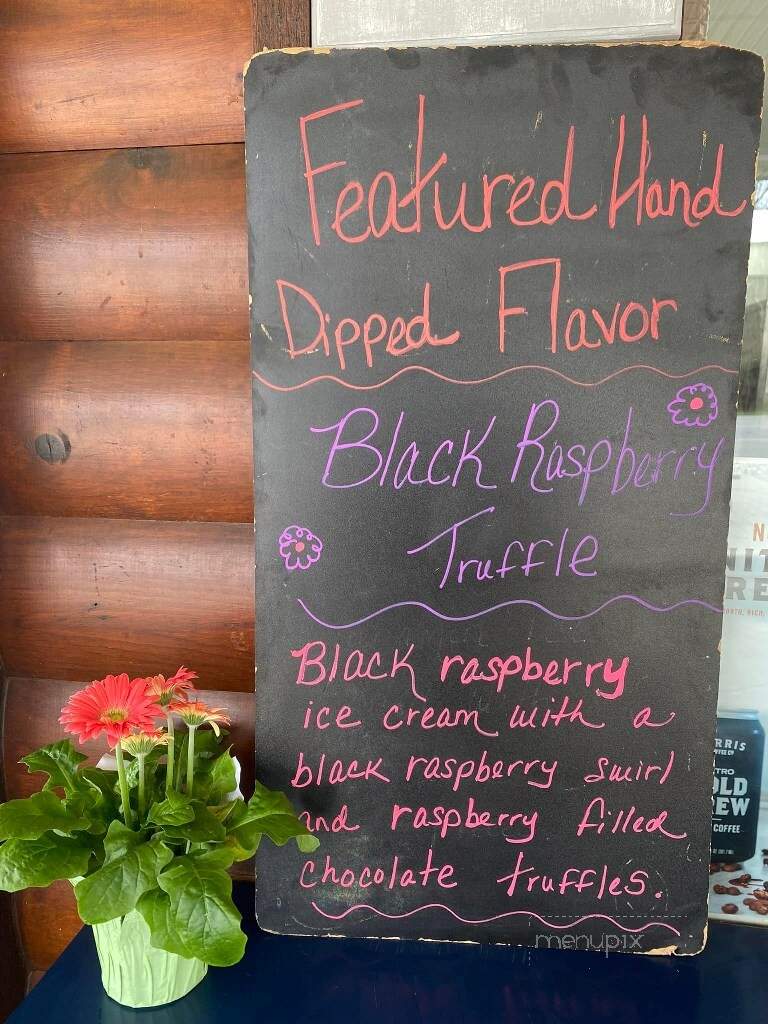 Featured Hand
Dipped Flavor
Black Raspberry
Truffle
Black raspberry
ice cream with a
black raspberry swirl
and raspberry filled
chocolate truffles.
menupix
RRIS
TRO
OLD
EW
COFFEE